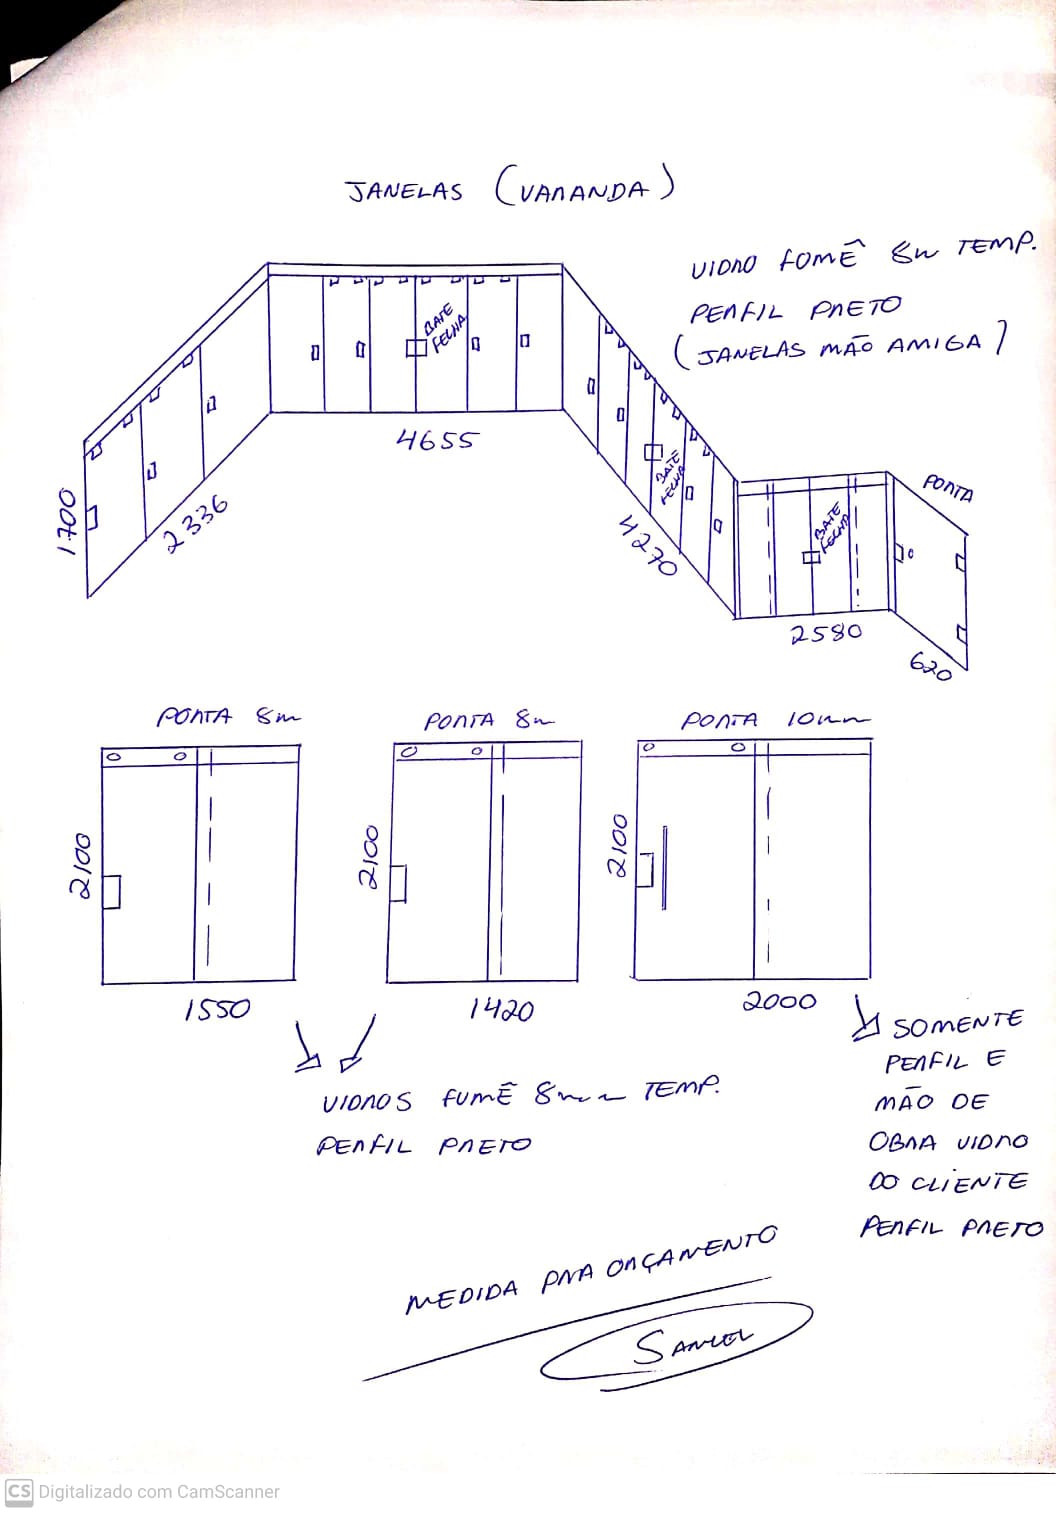 JANELAS (VARANDA)
VIDRO FUMÊ 8m TEMP.
PERFIL PRETO
(JANELAS MÃO AMIGA)
BATE
FECHA
4655
1700
2336
BATE
FECHA
4270
PORTA
BATE
FECHA
2580
620
PORTA 8m
PORTA 8m
PORTA 10mm
2100
2100
2100
1550
1420
2000
VIDROS FUMÊ 8mm TEMP.
PERFIL PRETO
SOMENTE
PERFIL E
MÃO DE
OBRA VIDRO
DO CLIENTE
PERFIL PRETO
MEDIDA PRA ORÇAMENTO
CS Digitalizado com CamScanner